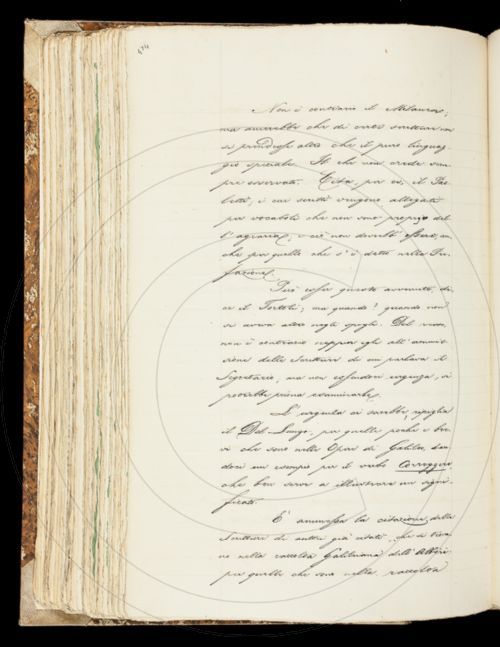 474
Non è contrario il Milanesi,
ma avverrebbe che di certe scritture non
si prendesse altro che il puro linguag-
gio speciale. Il che non crede sem-
pre osservato. Cita, per es., il Pao-
letti, i cui scritti vengono allegati
per vocaboli che non sono proprj del-
l'agraria; e ciò non dovrebb'essere, an-
che per quello che s'è detto nella Pre-
fazione.
Può esser questo avvenuto, di-
ce il Tortoli; ma quando? quando non
si aveva altro negli spogli. Del resto,
non è contrario neppur egli all'ammis-
sione delle Scritture di cui parlava il
Segretario; ma non essendoci urgenza, si
potrebbe prima esaminarle.
L'urgenza ci sarebbe, ripiglia
il Del-Lungo, per quelle poche e bre-
vi che sono nelle Opere di Galileo, dan-
doci un esempio per il verbo Correggere
che ben serve a illustrare un signi-
ficato.
È ammessa la citazione delle
Scritture di autori già citati, che si trova-
no nella raccolta Galileiana dell'Albèri
per quelle che sono nella raccolta